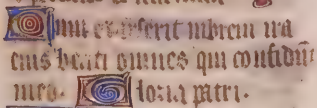 Cum exarserit inbreui ira
eius beati omnes qui confidūt
in eo. Gloria patri.